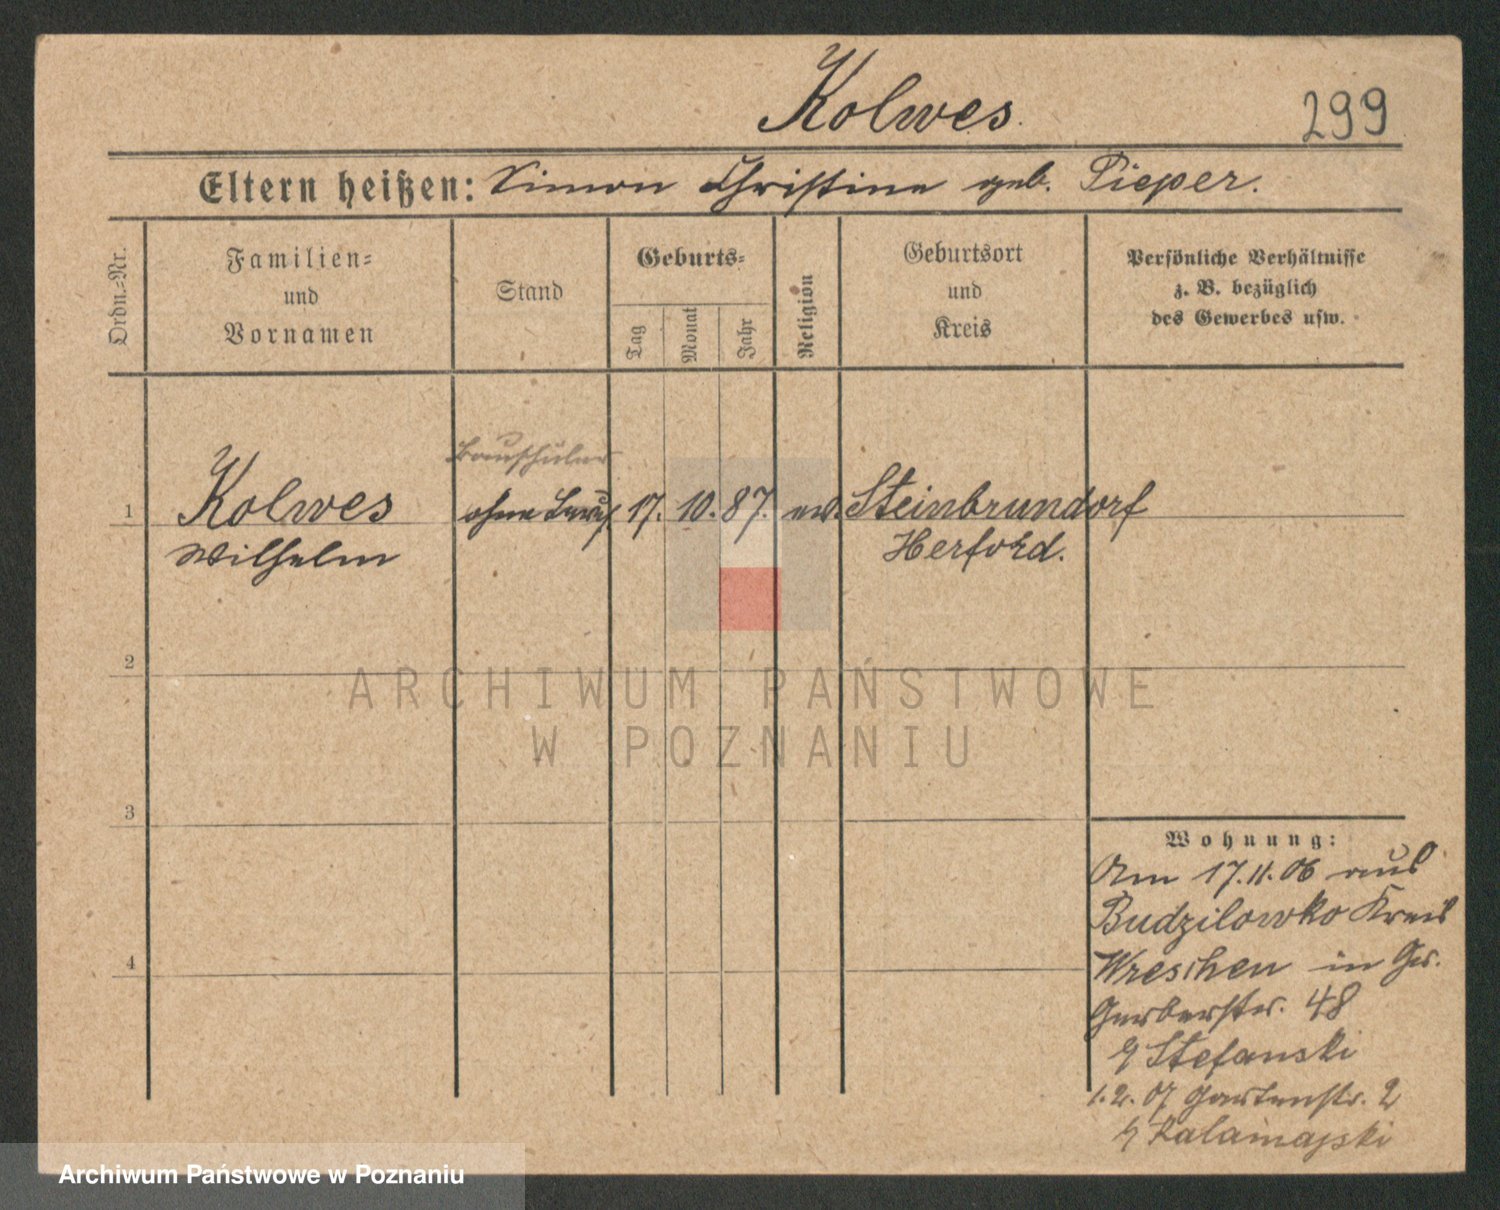 Kolwes.
299
Eltern heißen: Simon Christine geb. Pieper.
Ordn.-Nr.
Familien-
und
Vornamen
Stand
Geburts-
Tag
Monat
Jahr
Religion
Geburtsort
und
Kreis
Persönliche Verhältnisse
z. B. bezüglich
des Gewerbes usw.
Bauschüler
1 Kolwes ohne Beruf 17. 10. 87. ev. Steinbrundorf
Wilhelm Herford.
2
3
4
Wohnung:
Am 17.11.06 aus
Budzilowko Kreis
Wreschen in Gr.
Gerberstr. 48
Stefanski
1.2.07 Gartenstr. 2
Kalamajski
ARCHIWUM PAŃSTWOWE
W POZNANIU
Archiwum Państwowe w Poznaniu